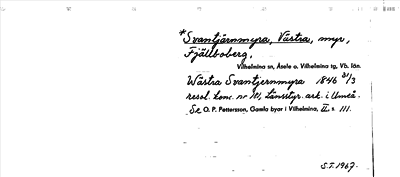 *Svantjärnmyra, Västra, myr,
Fjällboberg,
Vilhelmina sn, Åsele o. Vilhelmina tg, Vb. län.
Wästra Svantjernmyra 1846 31/3
resol. konc. nr 101, Länsstyr. ark. i Umeå.
Se O. P. Pettersson, Gamla byar i Vilhelmina, II, s. 111.
S.T. 1967.